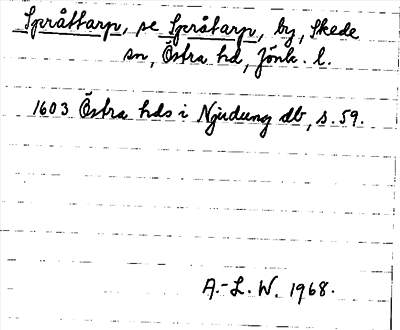 Språttarp, se Språtarp, by, Skede
sn, Östra hd, Jönk. l.
1603 Östra hds i Njudung db, s. 59.
A.-L. W. 1968.